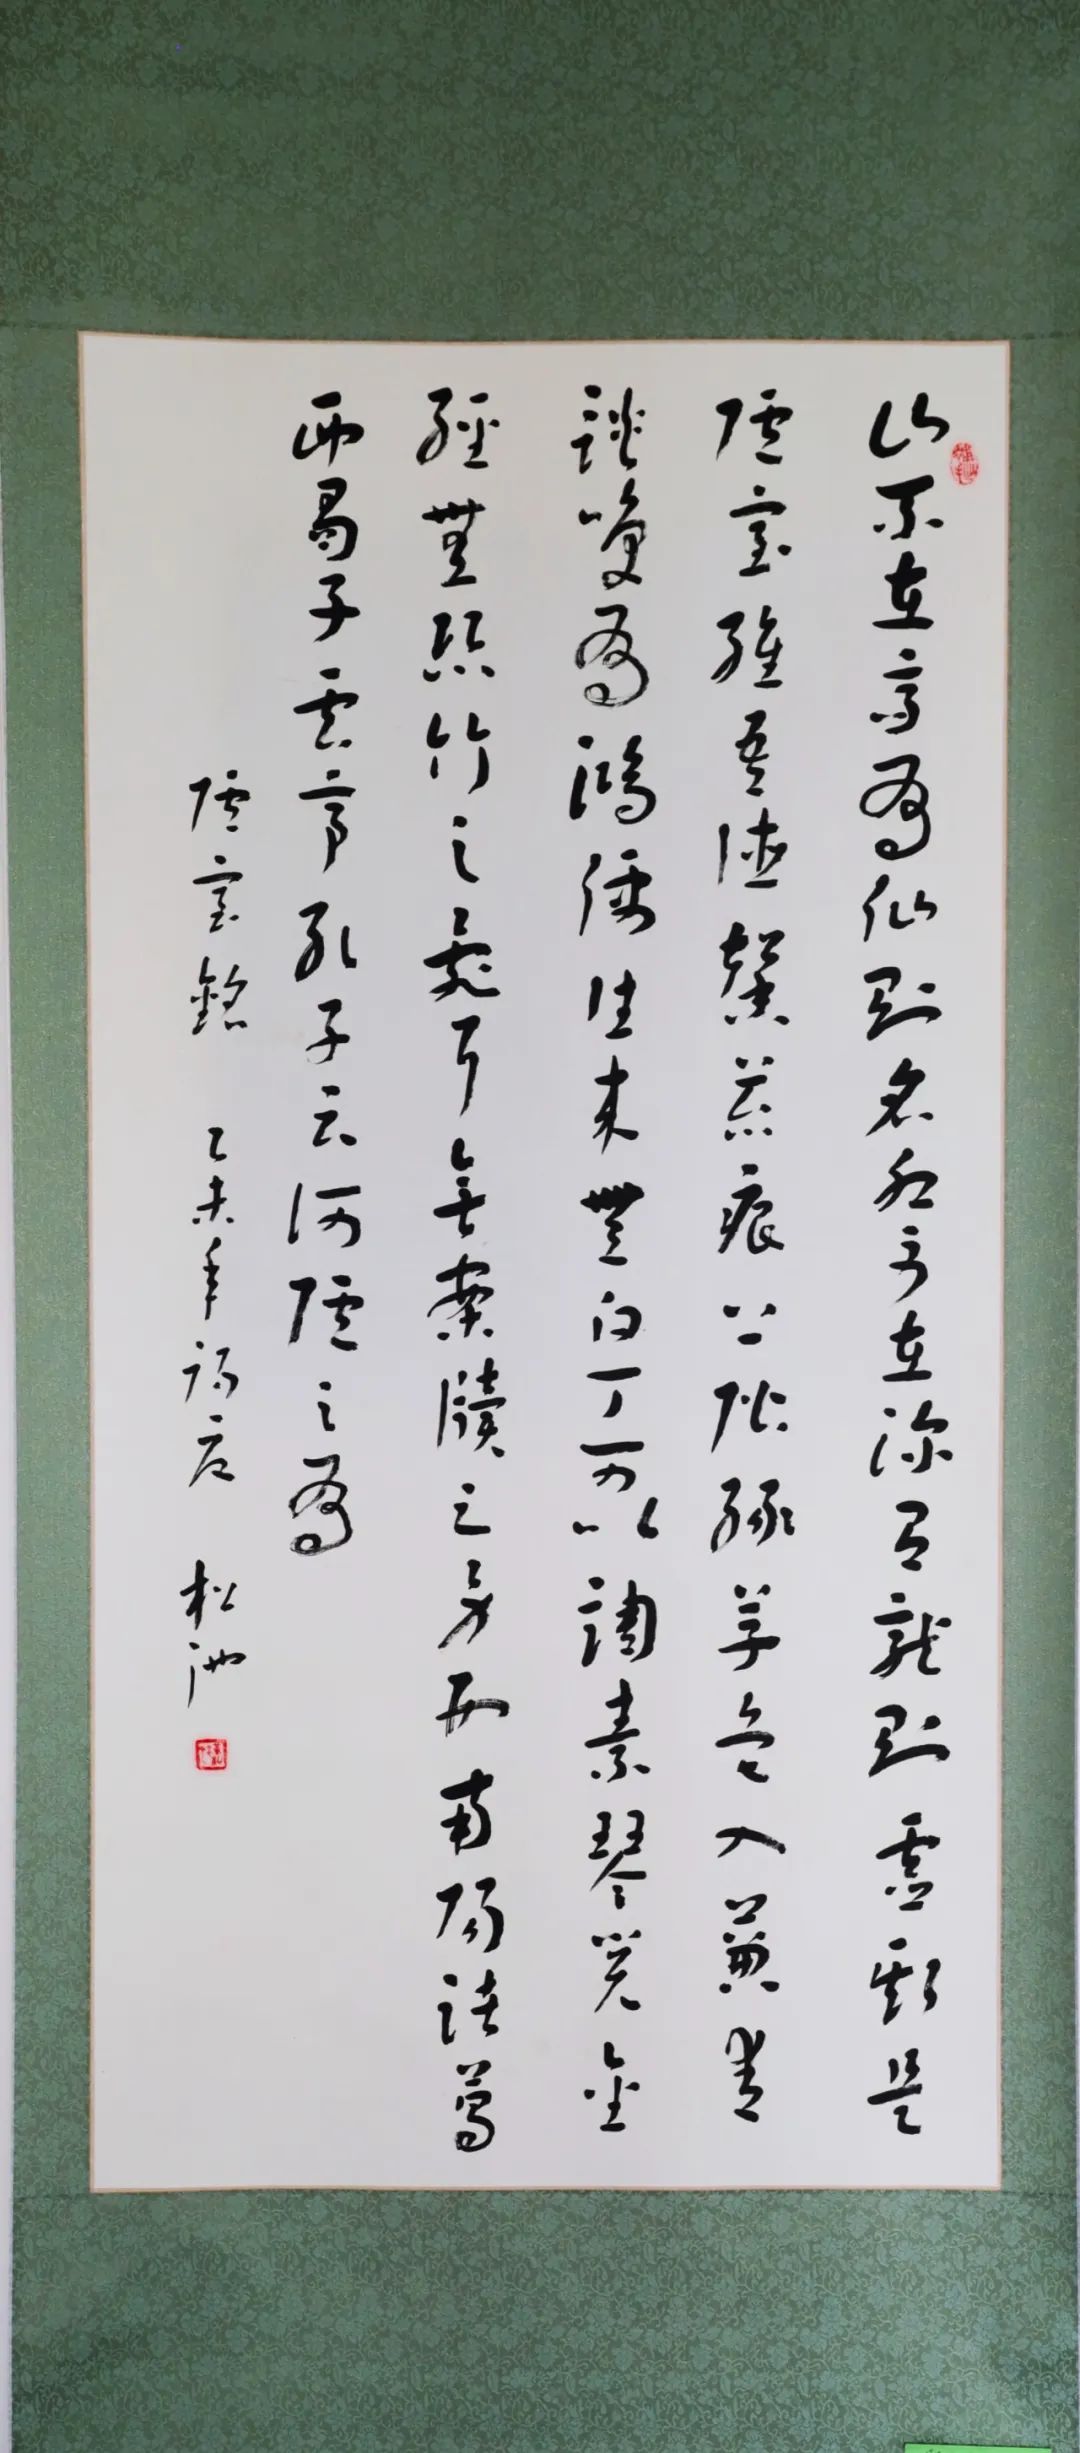 山不在高有仙則名水不在深有龍則靈斯是
陋室維吾德馨苔痕上階綠草色入簾青
談笑有鴻儒往來無白丁可以調素琴閱金
經無絲竹之亂耳無案牘之勞形南陽諸葛
西蜀子雲亭孔子云何陋之有
陋室銘 乙未年 松